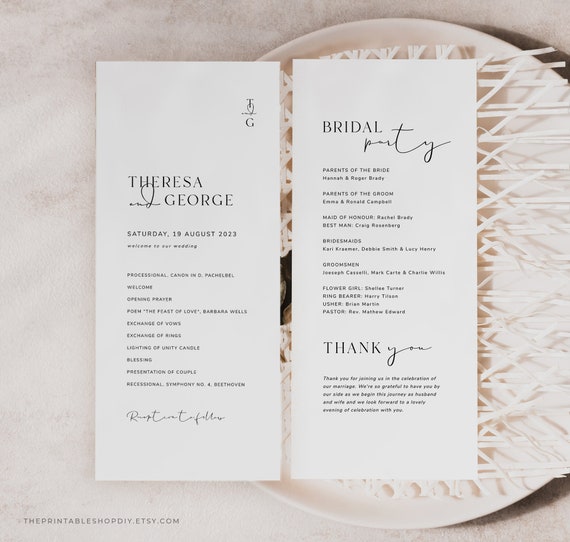 T
and
G
THERESA
and GEORGE
SATURDAY, 19 AUGUST 2023
welcome to our wedding
PROCESSIONAL, CANON IN D, PACHELBEL
WELCOME
OPENING PRAYER
POEM "THE FEAST OF LOVE", BARBARA WELLS
EXCHANGE OF VOWS
EXCHANGE OF RINGS
LIGHTING OF UNITY CANDLE
BLESSING
PRESENTATION OF COUPLE
RECESSIONAL, SYMPHONY NO. 4, BEETHOVEN
Reception to follow
BRIDAL
party
PARENTS OF THE BRIDE
Hannah & Roger Brady
PARENTS OF THE GROOM
Emma & Ronald Campbell
MAID OF HONOUR: Rachel Brady
BEST MAN: Craig Rosenberg
BRIDESMAIDS
Kari Kraemer, Debbie Smith & Lucy Henry
GROOMSMEN
Joeseph Casselli, Mark Carte & Charlie Willis
FLOWER GIRL: Shellee Turner
RING BEARER: Harry Tilson
USHER: Brian Martin
PASTOR: Rev. Mathew Edward
THANK you
Thank you for joining us in the celebration of
our marriage. We're so grateful to have you by
our side as we begin this journey as husband
and wife and we look forward to a lovely
evening of celebration with you.
THEPRINTABLESHOPDIY.ETSY.COM